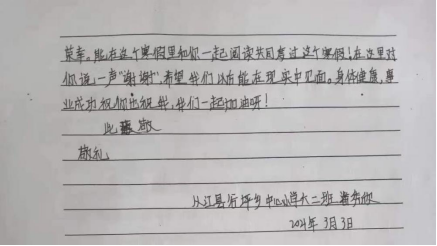 荣幸。能在这个寒假里和你一起阅读共同度过这个寒假!在这里对
你说一声"谢谢",希望我们以后能在现实中见面。身体健康,事
业成功祝你也祝我,我们一起加油呀!
此致敬
敬礼
从江县 坪乡中心小学六二班
2021年3月3日